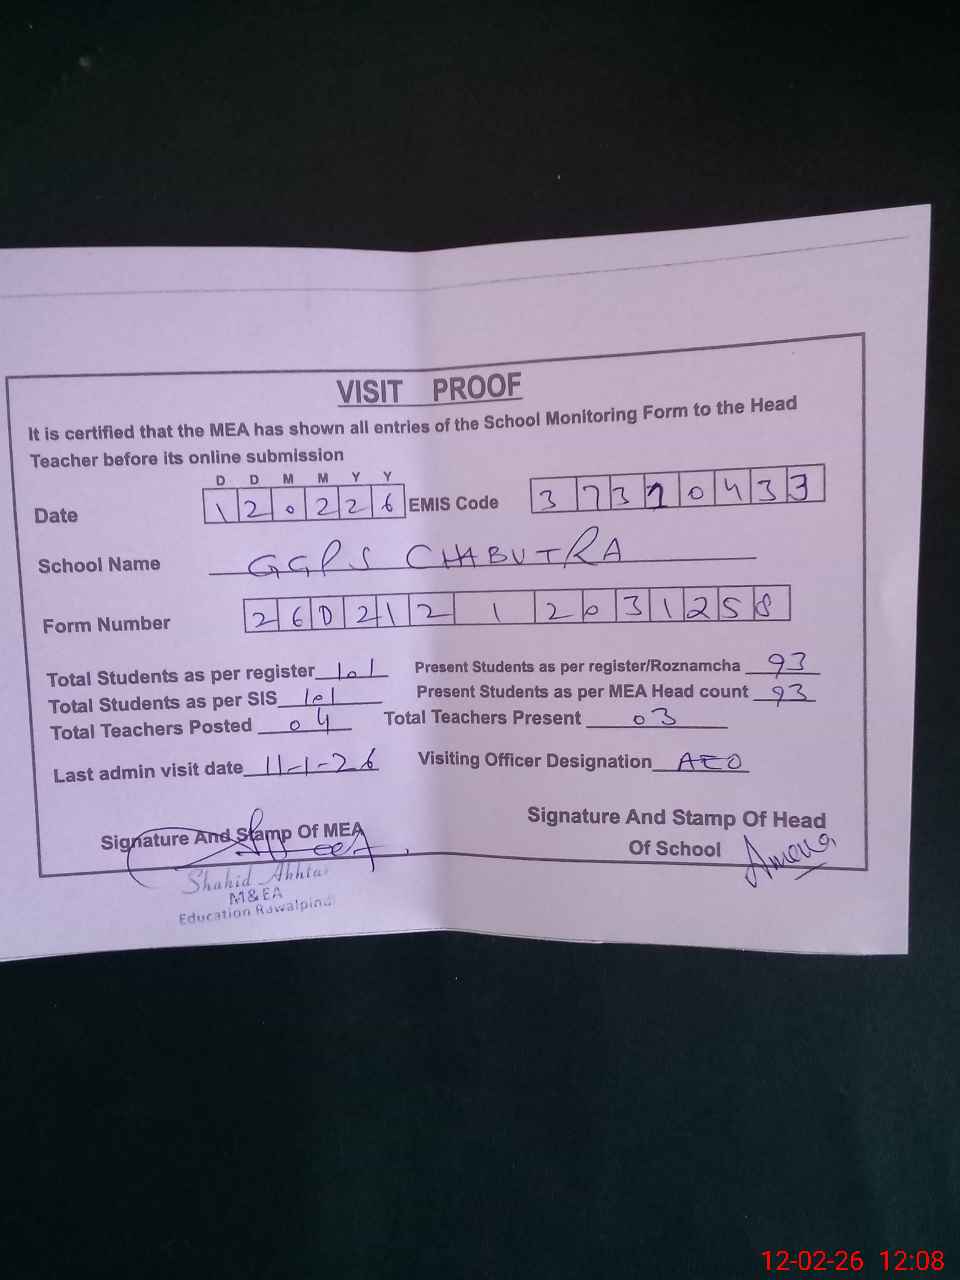 VISIT PROOF
It is certified that the MEA has shown all entries of the School Monitoring Form to the Head
Teacher before its online submission
D D M M Y Y
Date 1 2 0 2 2 6 EMIS Code 3 7 3 1 0 4 3 3
School Name GGPS CHABUTRA
Form Number 2 6 0 2 1 2 1 2 0 3 1 2 5 8
Total Students as per register 101 Present Students as per register/Roznamcha 93
Total Students as per SIS 101 Present Students as per MEA Head count 93
Total Teachers Posted 04 Total Teachers Present 03
Last admin visit date 11-1-26 Visiting Officer Designation AEO
Signature And Stamp Of MEA Signature And Stamp Of Head
Of School Amena
Shahid Akhtar
M&EA
Education Rawalpindi
12-02-26 12:08